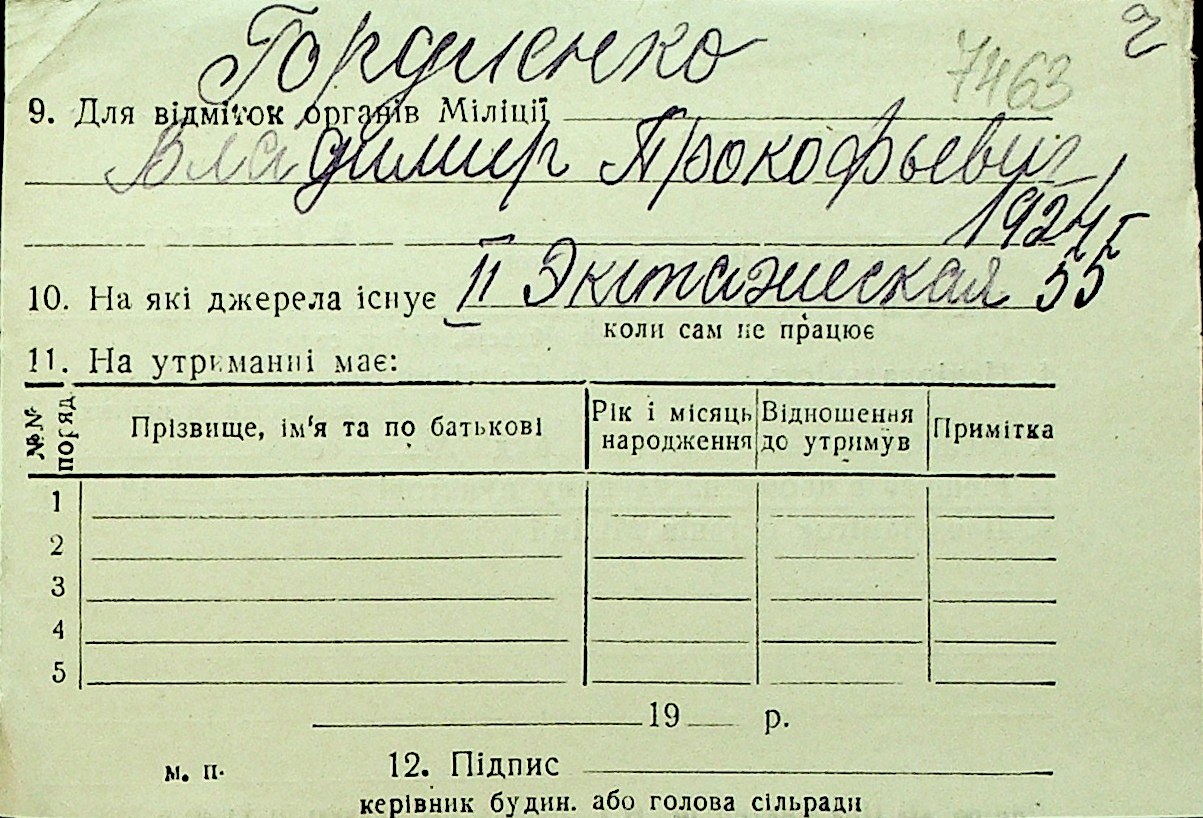 Гордиенко
7463
9. Для відміток органів Міліції
Владимир Прокофьевич
1924 г
10. На які джерела існує II 55
коли сам не працює
11. На утриманні має:
№№ поряд.
Прізвище, ім'я та по батькові
Рік і місяць народження
Відношення до утримув
Примітка
1
2
3
4
5
19 р.
м. п.
12. Підпис
керівник будин. або голова сільради